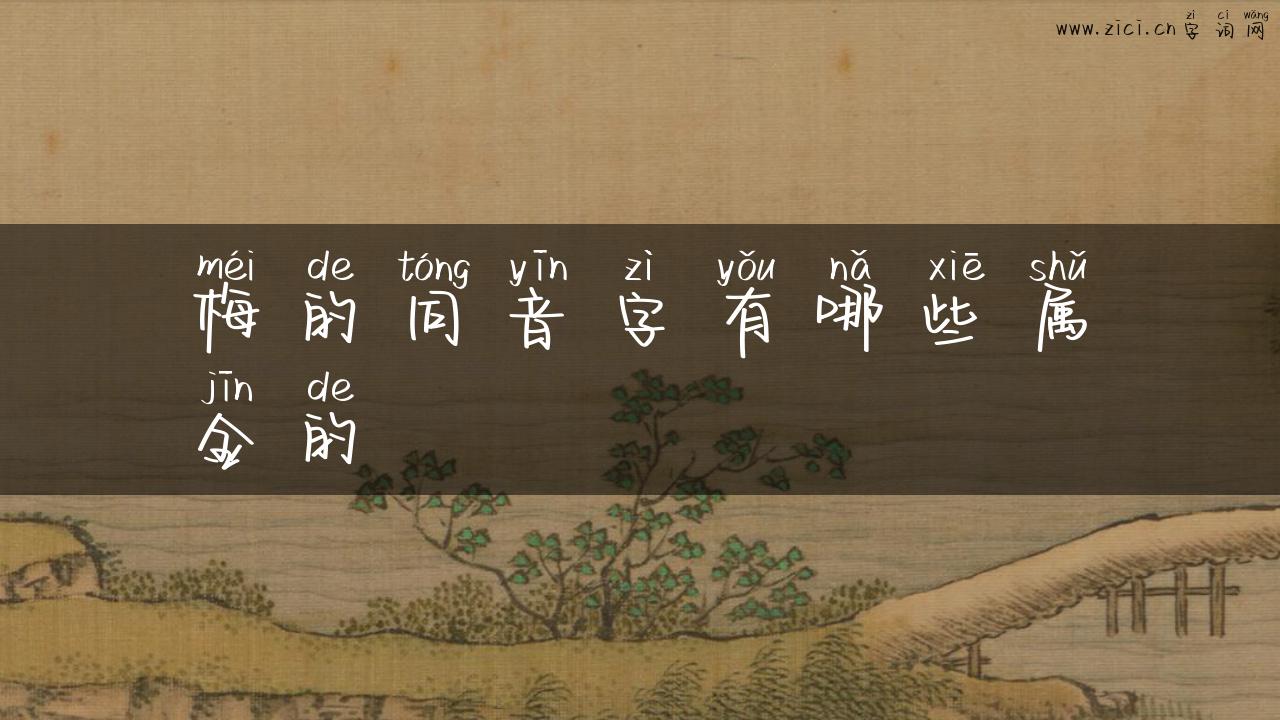 zì cí wǎng
www.zici.cn 字 词 网
méi de tóng yīn zì yǒu nǎ xiē shǔ
梅 的 同 音 字 有 哪 些 属
jīn de
金 的